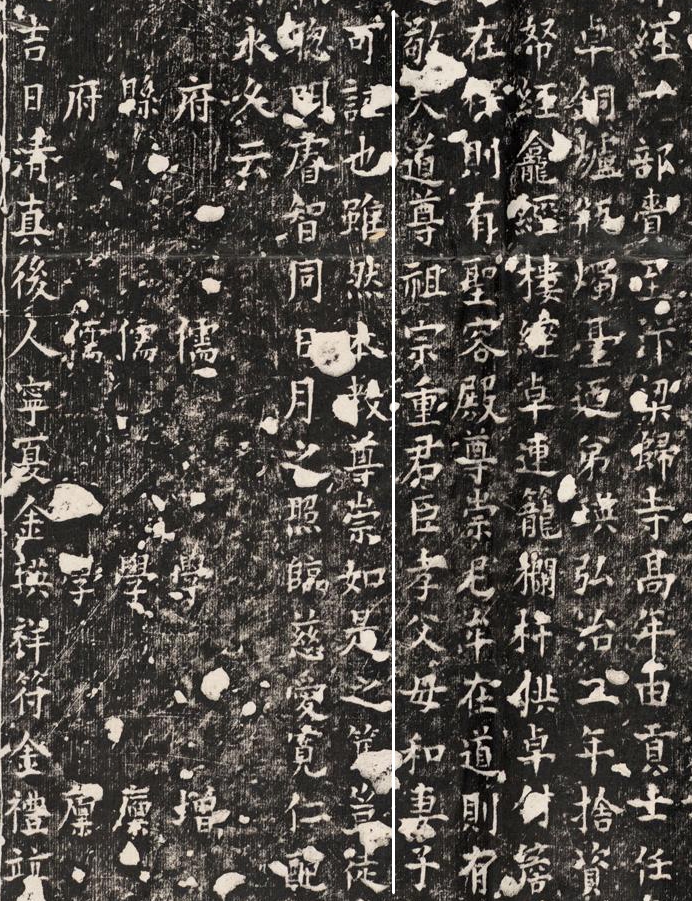 經一部賫至汴梁歸寺高年由貢士任
卓銅爐瓶燭臺廼弟瑛弘治二年捨資
帑經龕經樓經卓連籠欄杆供卓付簷
在釋則有聖容殿尊崇尼牟在道則有
敬天道尊祖宗重君臣孝父母和妻子
可証也雖然本教尊崇如是之篤豈徒
聰明睿智同日月之照臨慈愛寬仁配
永久云
府儒學增
縣儒學廩
府儒學廩
吉日清真後人寧夏金瑛祥符金禮竝